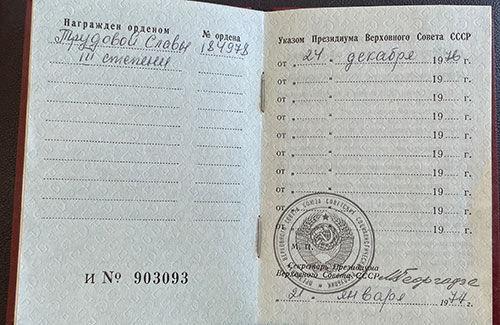 Награжден орденом
№ ордена
Трудовой Славы 184978
III степени
И № 903093
Указом Президиума Верховного Совета СССР
от „ 24 " декабря 1976 г.
от „ " 19 г.
от „ " 19 г.
от „ " 19 г.
от „ " 19 г.
от „ " 19 г.
от „ " 19 г.
от „ " 19 г.
от „ " 19 г.
от „ " 19 г.
М. П.
Секретарь Президиума
Верховного Совета СССР МГеоргадзе
„ 21 " января 1977 г.